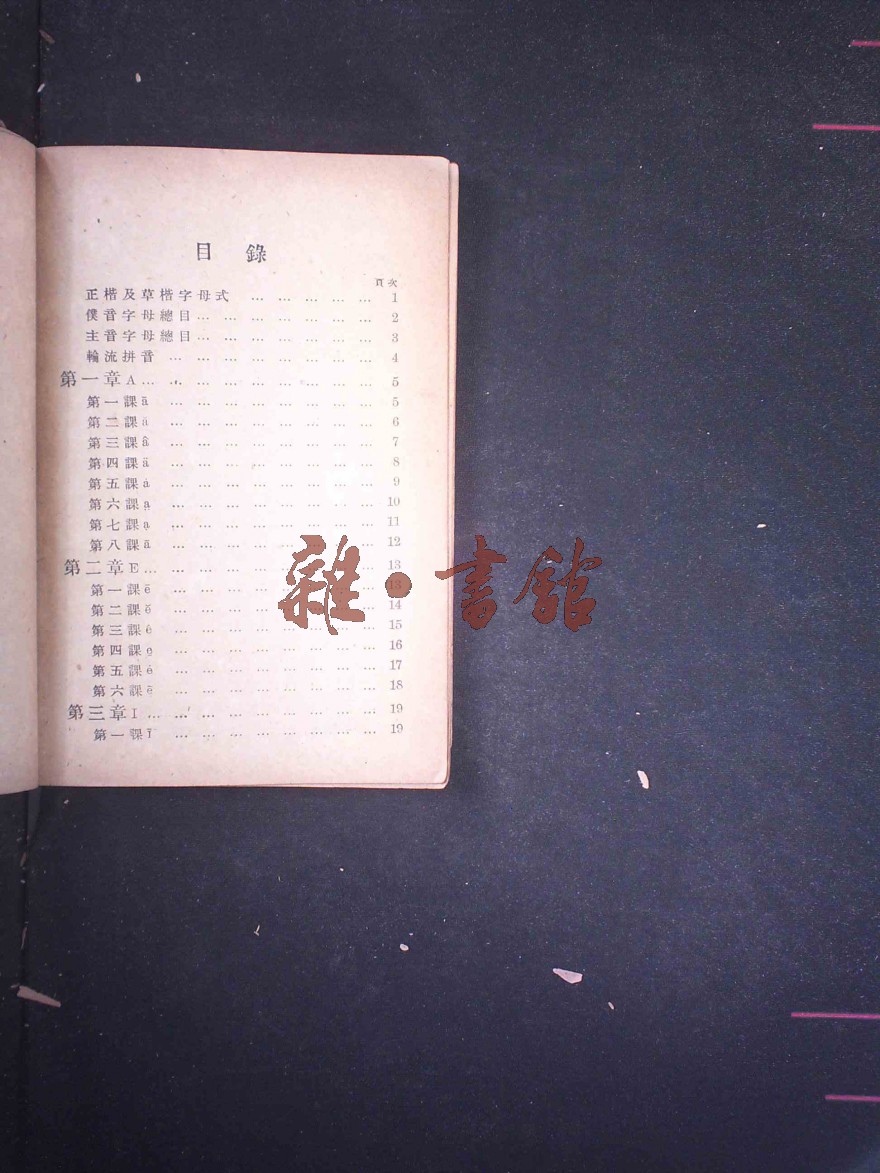 目錄
頁次
正楷及草楷字母式 … … … … … 1
僕音字母總目 … … … … … … … 2
主音字母總目 … … … … … … … 3
輪流拼音 … … … … … … … … 4
第一章 A … … … … … … … … … 5
第一課 ā … … … … … … … … 5
第二課 ă … … … … … … … … 6
第三課 â … … … … … … … … 7
第四課 ä … … … … … … … … 8
第五課 ȧ … … … … … … … … 9
第六課 a̤ … … … … … … … … 10
第七課 ạ … … … … … … … … 11
第八課 ã … … … … … … … … 12
第二章 E … … … … … … … … … 13
第一課 ē … … … … … … … … 13
第二課 ĕ … … … … … … … … 14
第三課 ê … … … … … … … … 15
第四課 … … … … … … … … 16
第五課 ė … … … … … … … … 17
第六課 … … … … … … … … 18
第三章 I … … … … … … … … … 19
第一課 ī … … … … … … … … 19
雜·書館